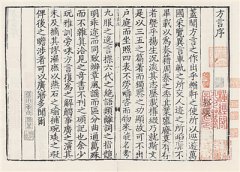 方言序
郭璞
蓋聞方言之作出乎輶軒之使所以巡遊萬
國采覽異言車軌之所交人迹之所蹈靡不
畢載以爲奏籍周秦之季其業隳廢莫有存
者暨乎楊生沉淡其志歷載構綴乃就斯文
是以三五之篇著而獨鑒之功顯故可不出
戶庭而坐照四表不勞疇咨而物來能名考
九服之逸言摽六代之絕語類離詞之指韻
明乖途而同致辨章風謠而區分曲通萬殊
而不雜真洽見之奇書不刊之碩記也余少
玩雅訓旁味方言復爲之解觸事廣之演其
未及摘其謬漏庶以燕石之瑜補琬琰之瑕
俾後之瞻涉者可以廣寤多聞爾